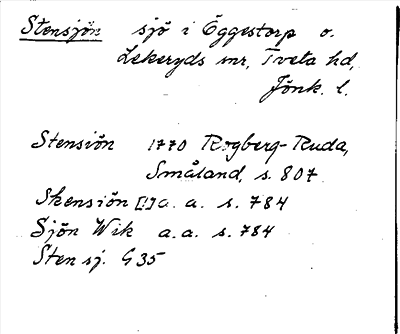 Stensjön sjö i Öggestorp o.
Lekeryds snr, Tveta hd,
Jönk. l.
Stensiön 1770 Rogberg-Ruda,
Småland, s. 807
Skensiön [!] a. a. s. 784
Sjön Wik a.a. s. 784
Sten sj. G35